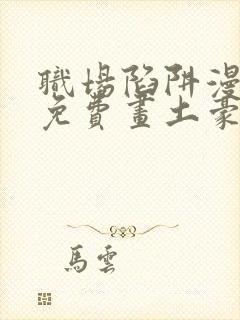 職場陷阱漫
免費畫土豪
馬雲